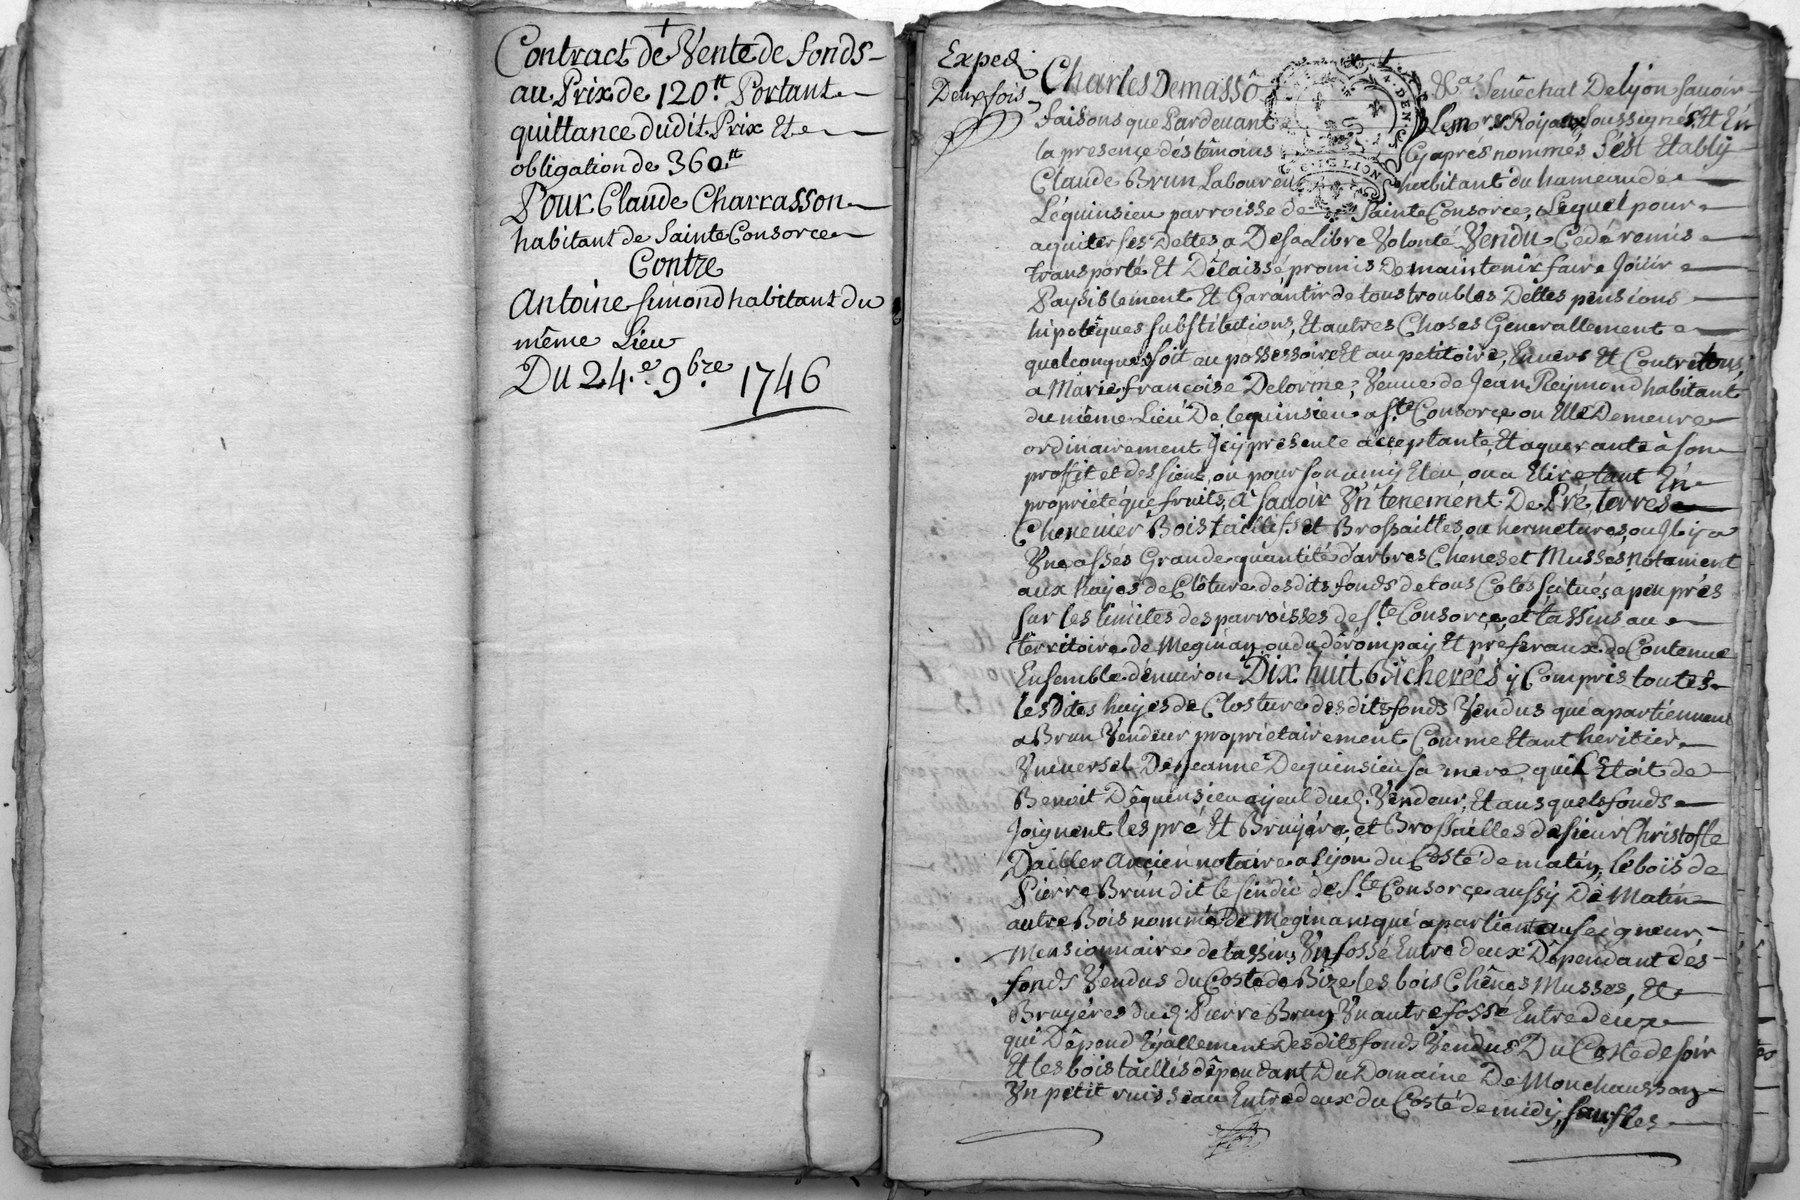 Contract de Vente de fonds
au Prix de 120.tt Portant
quittance dudit Prix Et
obligation de 360.tt
Pour Claude Charrasson
habitant de Sainte Consorce
Contre
Antoine Simond habitant du
même Lieu
Du 24.e 9.bre 1746
Exped.
Deux fois
Charles Demassô Senêchal De Lyon savoir
faisons que Pardevant Les no.res Royaux soussignés Et En
la presence des têmoins Cy apres nommés S'est Etably
Claude Brun Laboureur habitant du hameau de
Lêquinsieu parroisse de Sainte Consorce, Lequel pour
aquiter ses Dettes a De sa Libre Volonté Vendu Cedé remis
transporté Et Dêlaissé promis De maintenir faire Joüir
Paysiblement Et Garantir de tous troubles Dettes pensions
hipotêques substitutions, Et autres Choses Generallement
quelconques soit au possessoire Et au petitoire, Envers Et Contre tous,
a Marie francoise Delorme, Veuve de Jean Reymond habitant
du même Lieu De lequinsieu a S.te Consorce ou Elle Demeure
ordinairement Icy presente acceptante, Et aquerante à son
proffit et des siens, ou pour son amy Eleu ou a Elire tant En
propriété que fruits, à savoir Vn tenemênt De Pré terres
Chenevier Bois taillifs et Brossailles ou hermetures, ou Il y a
Vne assés Grande quantité d'arbres Chênes et Mussés notament
aux hayes de Clôture desdits fonds de tous Cotés situés a peu prés
sur les limites des parroisses de S.te Consorce, et tassins au
têrritoire de Meginan ou du dêrompay Et prêferaux de Contenue
Ensemble d'environ Dix huit Bicherées y Compris toutes
lesDites hayes de Closture desdits fonds Vendus qui apartiennent
a Brun Vendeur proprietairement Comme Etant hêritier
Vniversel De Jeanne Dequinsieu sa mere qui l'Etoit de
Benoit Dêquinsieu ayeul dud. Vendeur, Et ausquels fonds
Joignent les pré Et Bruyére, et Brossailles de sieur Christofle
Dailler Ancien notaire a Lyon du Costé de matin, le bois de
Pierre Brun dit le sindic de S.te Consorce aussy De Matin
autre Bois nommé de Meginan qui apartient au seigneur
Mensionnaire de tassins Vn fossé Entre deux Dêpendant des
fonds Vendus du Costé de Bize les bois Chênes Musses, Et
Bruyéres dud. Pierre Brun Vn autre fossé Entre deux
qui Dêpend Egallement desdits fonds Vendus Du Costé de soir
Et les bois taillis dêpendant Du Domaine De Monchausson
Vn petit ruisseau Entre deux du Costé de midy, sauf les